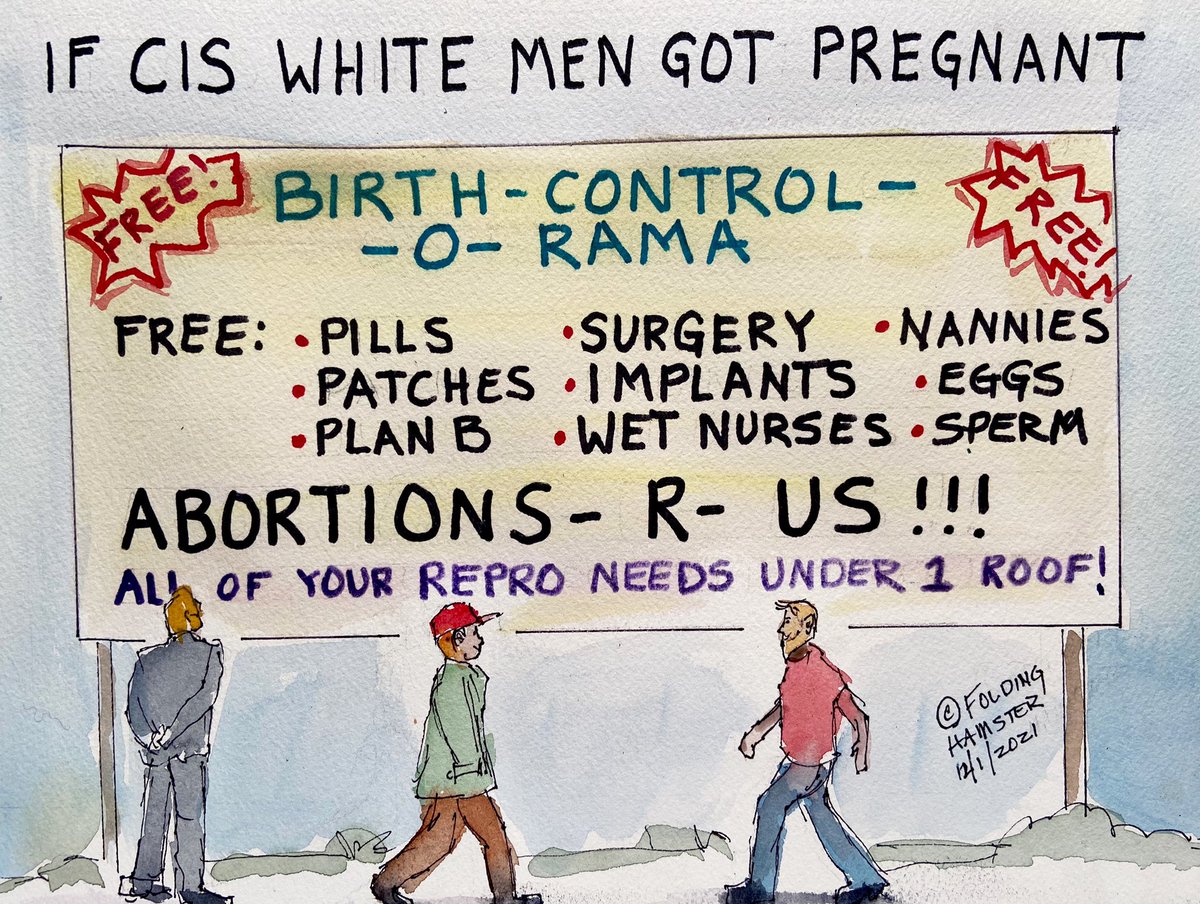 IF CIS WHITE MEN GOT PREGNANT
FREE!
BIRTH-CONTROL-
-O-RAMA
FREE!
FREE: •PILLS •SURGERY •NANNIES
•PATCHES •IMPLANTS •EGGS
•PLAN B •WET NURSES •SPERM
ABORTIONS-R-US!!!
ALL OF YOUR REPRO NEEDS UNDER 1 ROOF!
©FOLDING
HAMSTER
12/1/2021